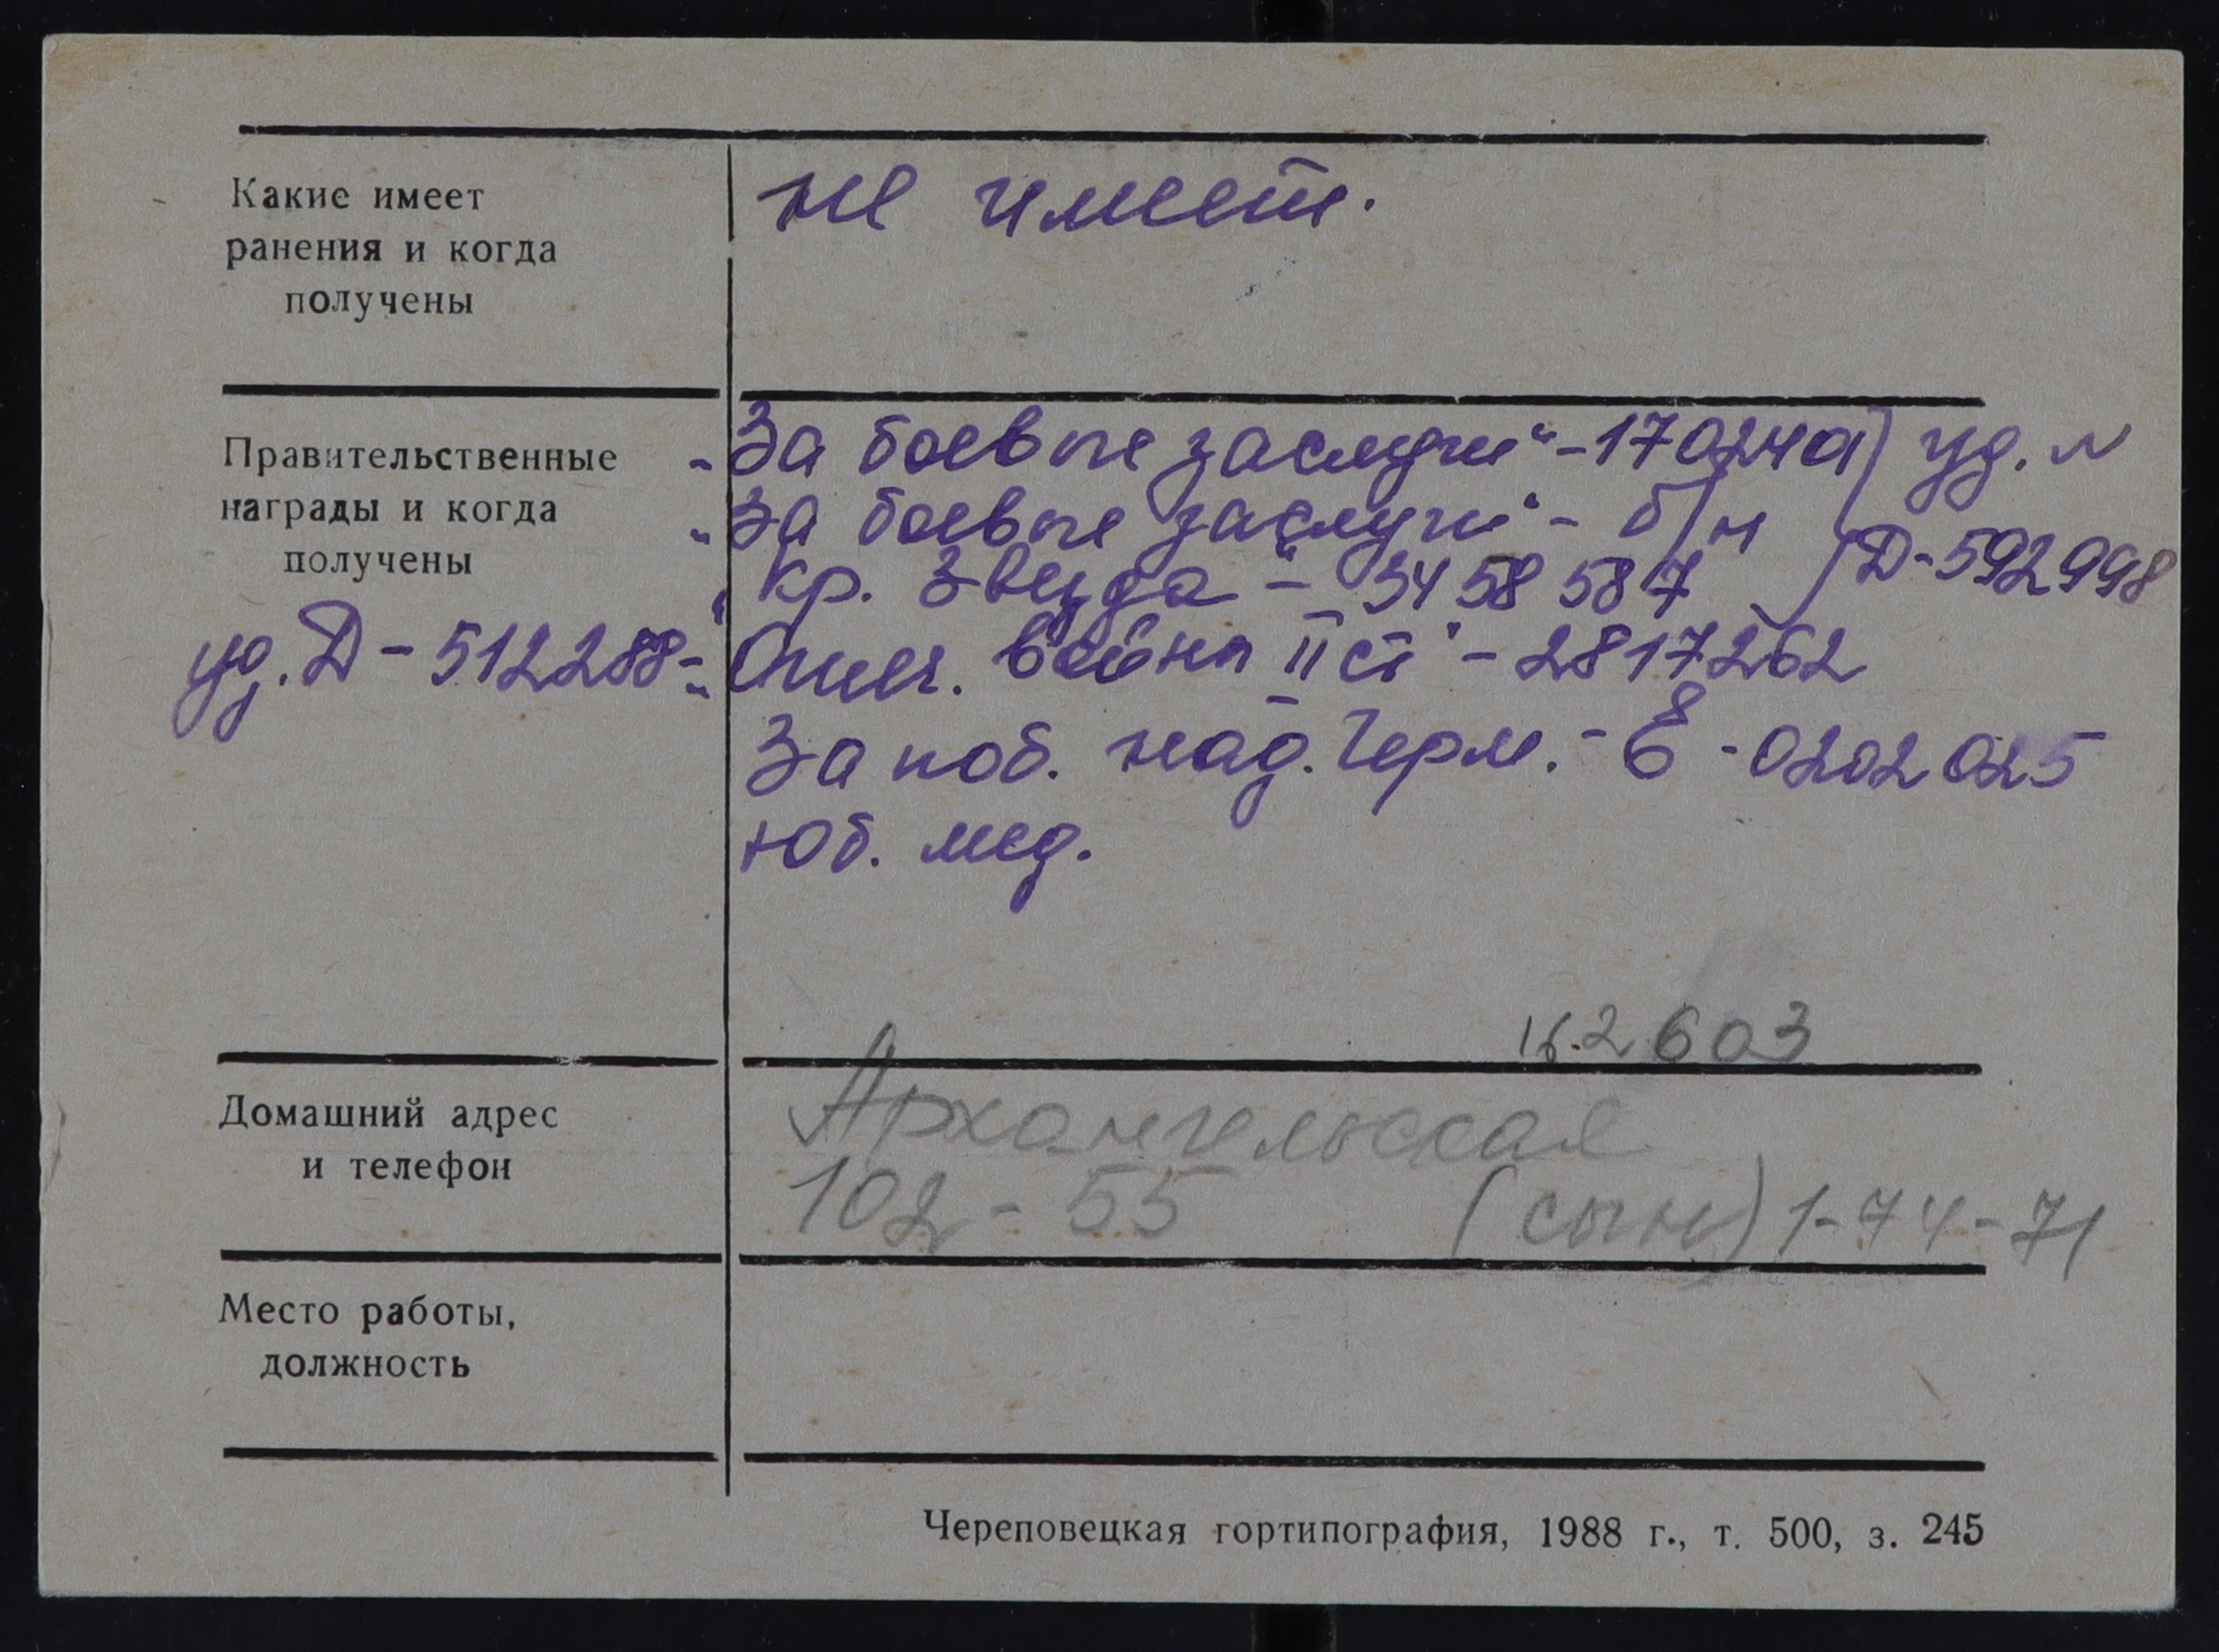 Какие имеет
ранения и когда
получены
не имеет.
Правительственные
награды и когда
получены
„За боевые заслуги“ - 1702401) уд. N
„За боевые заслуги“ - б/н
Д-592998
„Кр. Звезда“ - 3458587
уд. Д - 512288 - „Отеч. войны II ст“ - 2817262
За поб. над. Герм. - Е - 0202025
8
Юб. мед.
16.2 603
Домашний адрес
и телефон
Архангельская
102 - 55 (сын) 1-74-71
Место работы,
должность
Череповецкая гортипография, 1988 г., т. 500, з. 245